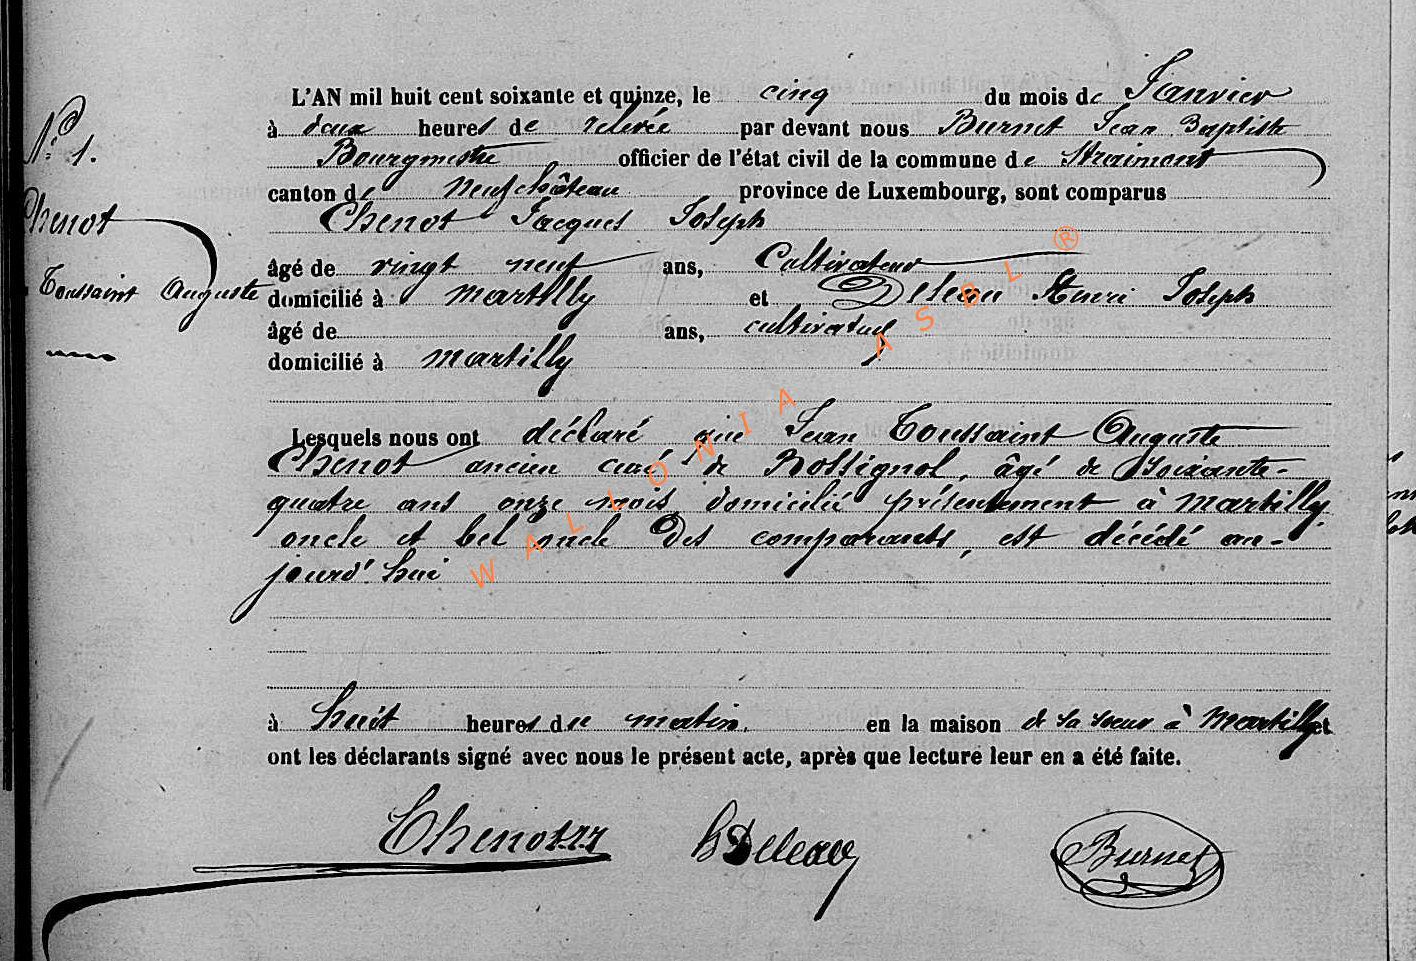 L'AN mil huit cent soixante et quinze, le cinq du mois de Janvier
à deux heures de relevée par devant nous Burnet Jean Baptiste
Bourgmestre officier de l'état civil de la commune de Straimont
canton de Neufchâteau province de Luxembourg, sont comparus
Chenot Jacques Joseph
âgé de vingt neuf ans, Cultivateur
domicilié à Martilly et Deleau Henri Joseph
âgé de ans, cultivateur
domicilié à Martilly
Lesquels nous ont déclaré que Jean Toussaint Auguste
Chenot ancien curé de Rossignol, âgé de soixante-
quatre ans onze mois domicilié présentement à Martilly,
oncle et bel oncle des comparants, est décédé au-
jourd'hui
à huit heures du matin, en la maison de sa sœur à Martilly et
ont les déclarants signé avec nous le présent acte, après que lecture leur en a été faite.
Chenot JJ HDeleau Burnet
N° 1.
Chenot
Toussaint Auguste
WALLONIA ASBL ®